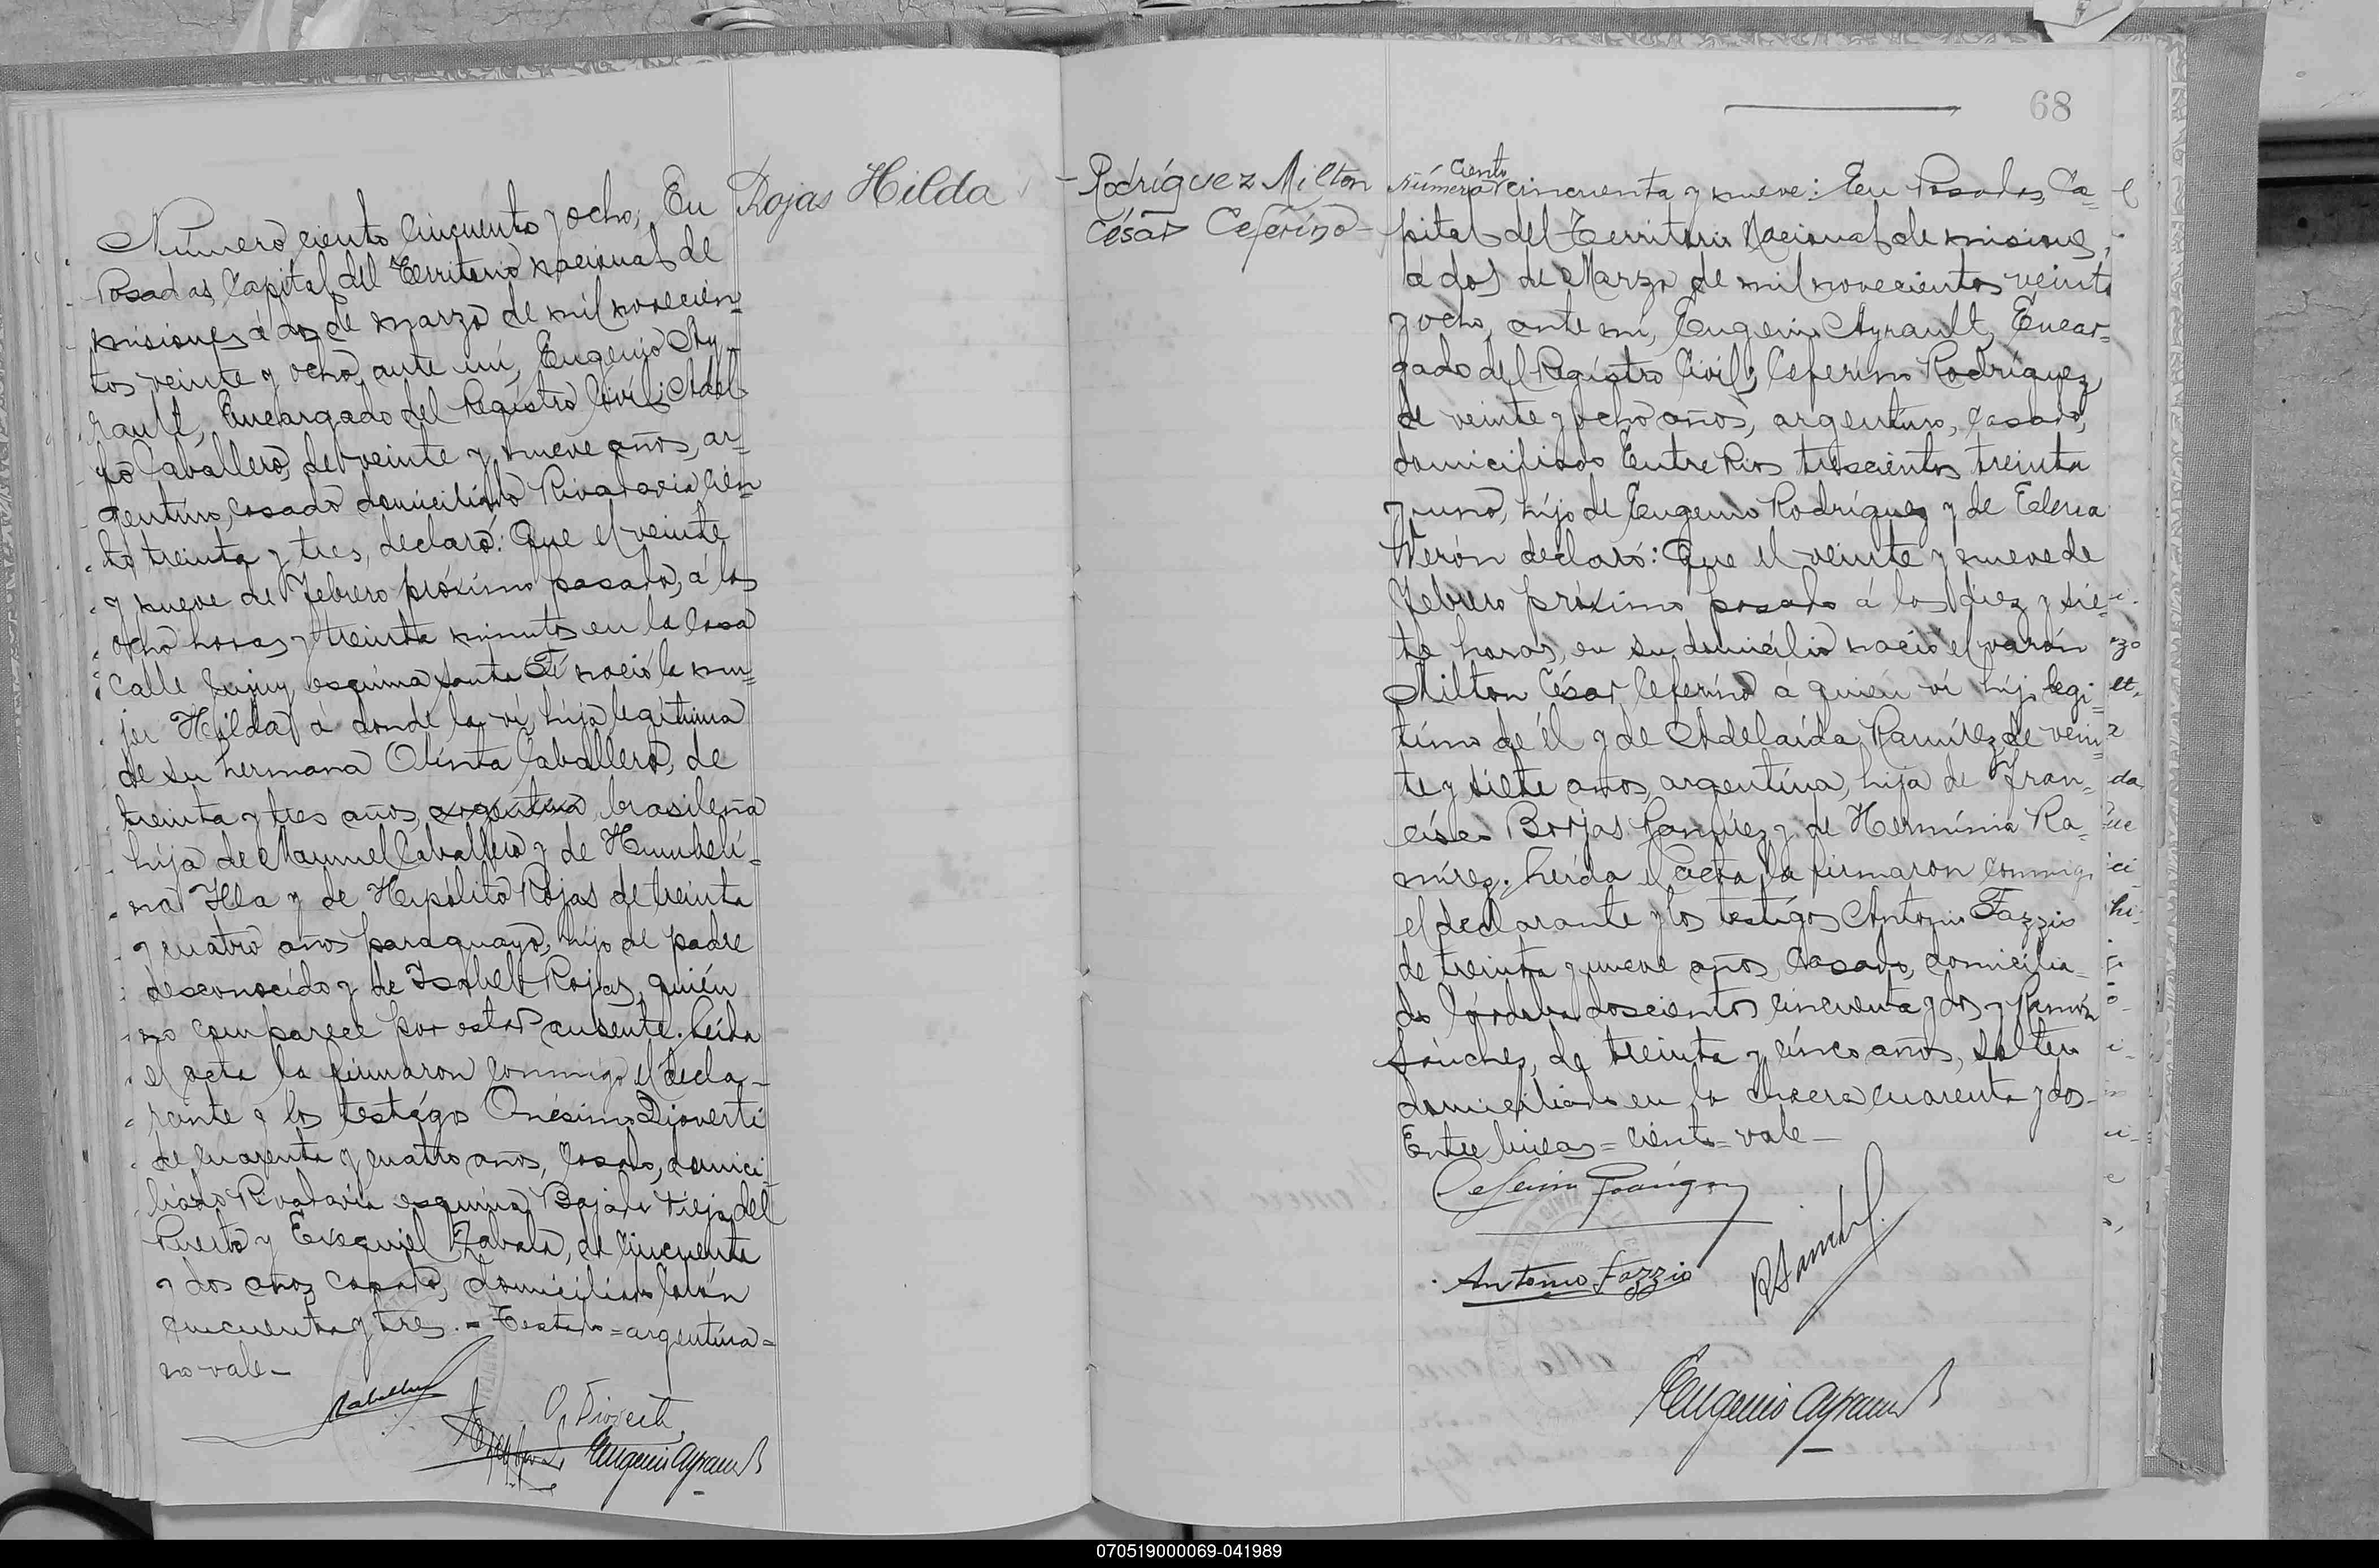 Rojas Hilda
Número ciento cincuenta y ocho, En
Posadas, Capital del Territorio nacional de
misiones á dos de marzo de mil novecien=
tos veinte y ocho, ante mí, Eugenio Ay-
rault, Encargado del Registro Civil; Adol
fo Caballero, de veinte y nueve años, ar-
gentino, casado domiciliado Rivadavia cien
to treinta y tres, declaró: Que el veinte
y nueve de Febrero próximo pasado, á las
ocho horas y treinta minutos en la casa
calle Jujuy esquina Santa Fé nació la mu=
jer Hilda á donde la ví, hija legítima
de su hermana Olinta Caballero, de
treinta y tres años, argentina brasileña
hija de Manuel Caballero y de Humbeli=
na y de Hipólito Rojas de treinta
y cuatro años paraguayo, hijo de padre
desconocido y de Isabel Rojas, quién
no comparece por estar ausente. Leída
el acta la firmaron conmigo el decla-
rante y los testigos Onésimo Dioverti
de cuarenta y cuatro años, casado, domici-
liado Rivadavia esquina Bajada Vieja del
Puerto y Exequiel Zabala, de cincuenta
y dos años casado, domiciliado
cincuenta y tres. = Testado = argentina =
no vale -
ACaballero
O. Dioverti
Eugenio Ayrault
68
- Rodríguez Milton
César Ceferino -
Ciento
Número cincuenta y nueve: En Posadas, Ca-
pital del Territorio Nacional de misiones,
á dos de Marzo de mil novecientos veinte
y ocho, ante mí, Eugenio Ayrault, Encar-
gado del Registro Civil; Ceferino Rodríguez
de veinte y ocho años, argentino, casado,
domiciliado Entre Rios trescientos treinta
y uno, hijo de Eugenio Rodríguez y de
Verón declaró: Que el veinte y nueve de
Febrero próximo pasado á las diez y sie-
te horas, en su domicilio nació el varón
Milton César Ceferino á quien ví hijo legí-
timo de él y de Adelaida Ramírez de vein-
te y siete años, argentina, hija de Fran-
cisco Borjas Ramírez y de Herminia Ra-
mírez. Leída el acta la firmaron conmigo
el declarante y los testigos Antonio Fazzio
de treinta y nueve años, casado, domicilia-
do Córdoba doscientos cincuenta y dos y Ramón
Sánchez, de treinta y cinco años, soltero
domiciliado en la chacra cuarenta y dos -
Entre lineas = ciento = vale -
Ceferino Rodríguez
Antonio Fazzio
RSanchez
Eugenio Ayrault
070519000069-041989